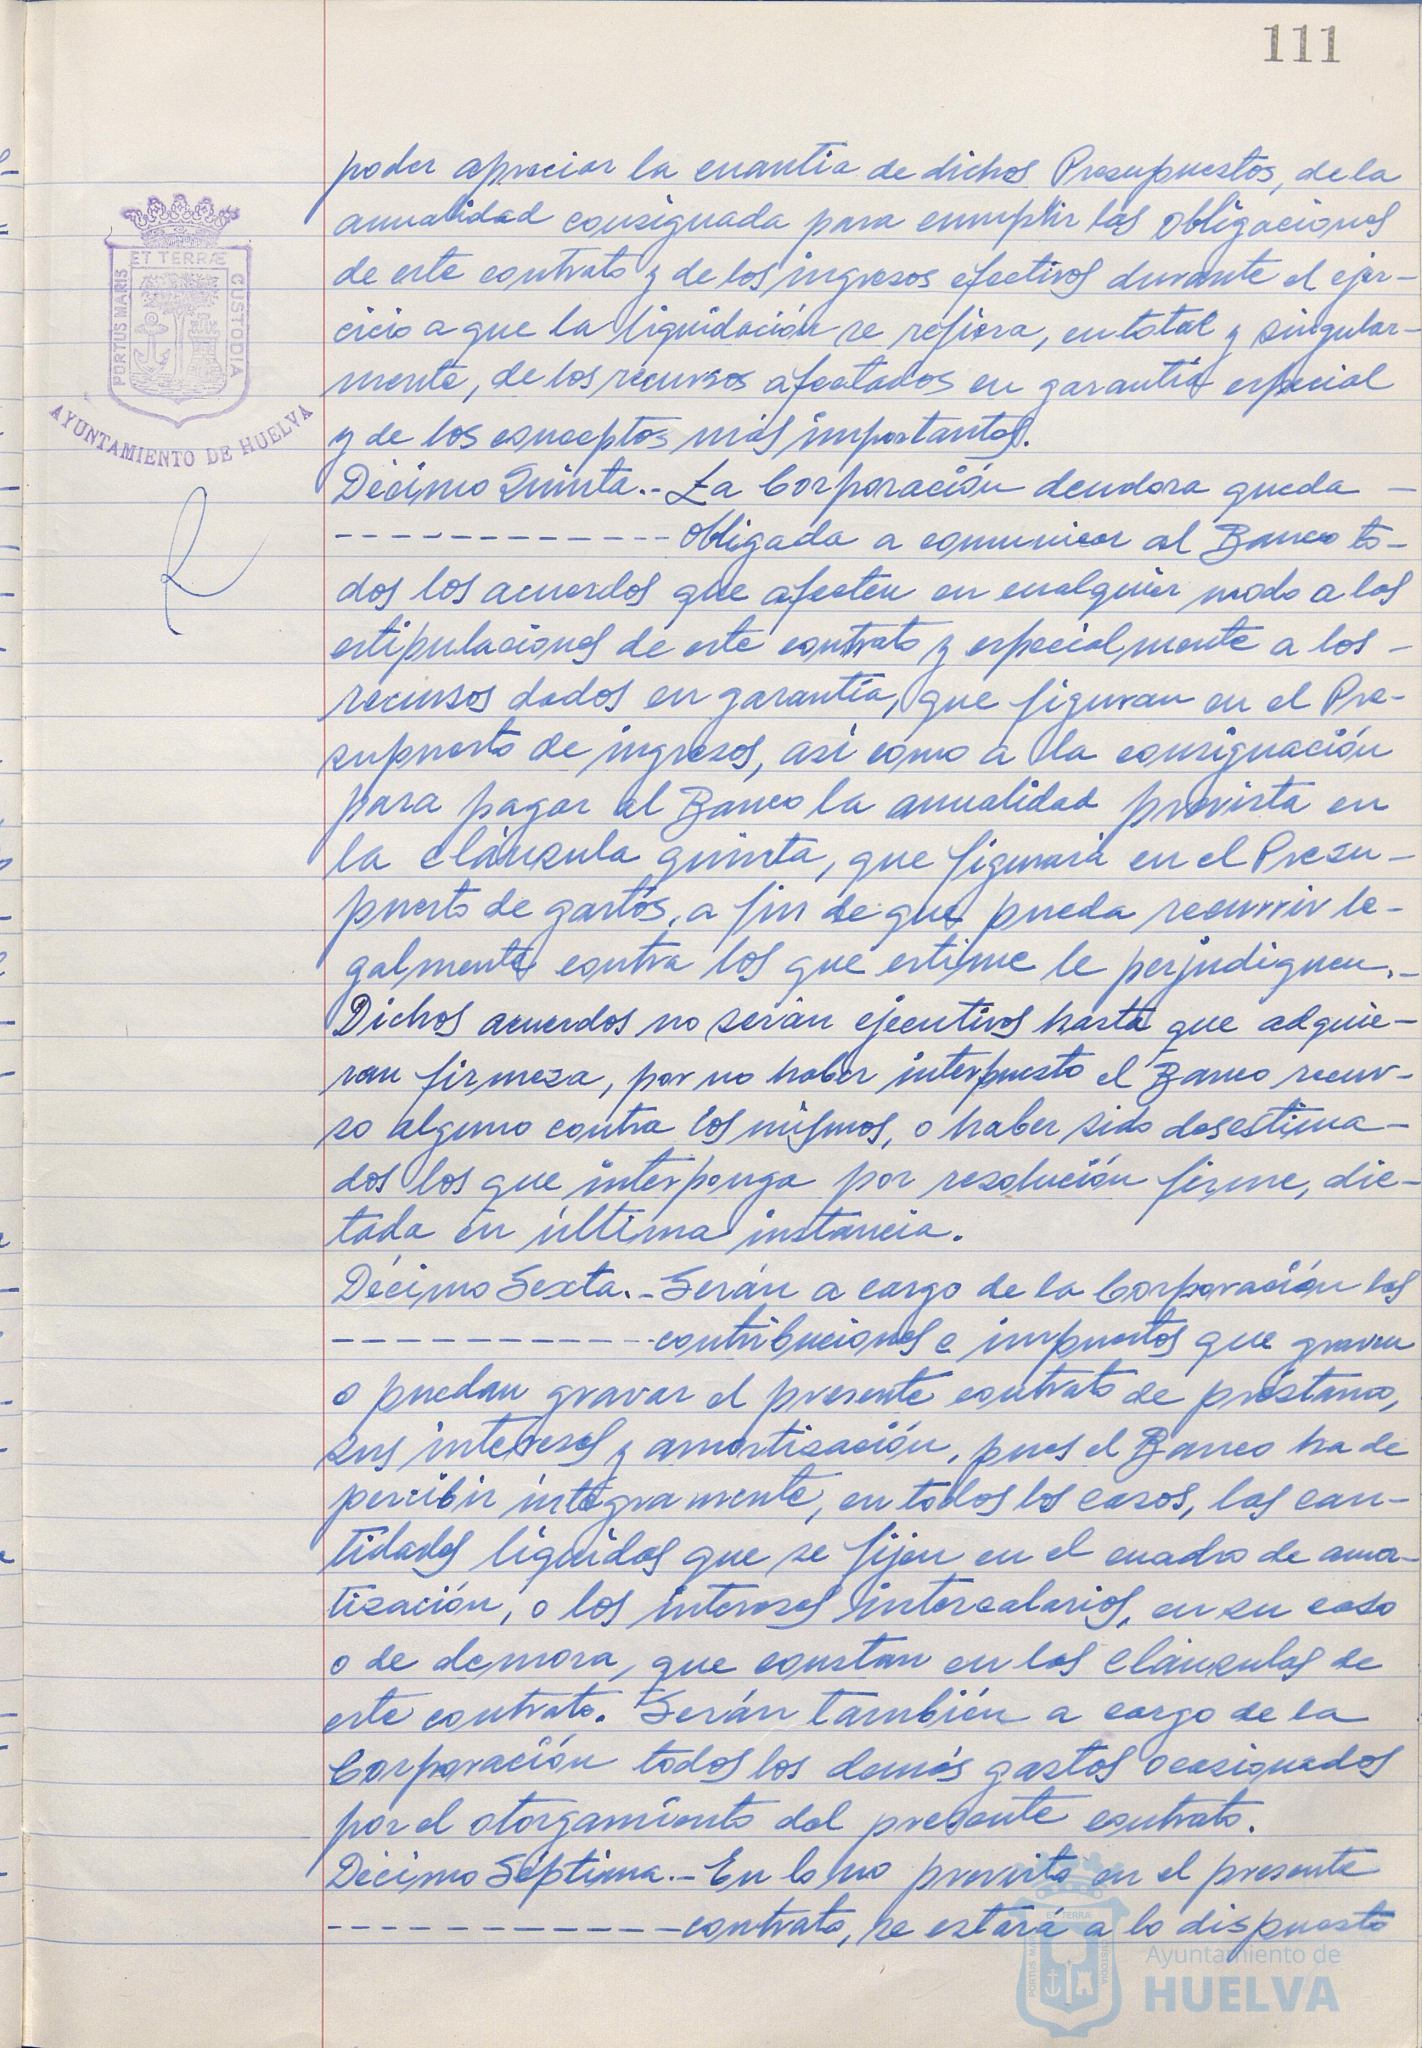 111
ET TERRÆ
PORTUS MARIS
CUSTODIA
AYUNTAMIENTO DE HUELVA
poder apreciar la cuantia de dichos Presupuestos, de la
anualidad consignada para cumplir las obligaciones
de este contrato y de los ingresos efectivos durante el ejer-
cicio a que la liquidación se refiera, en total y singular-
mente, de los recursos afectados en garantía especial
y de los conceptos más importantes.
Décimo Quinta.- La Corporación deudora queda -
------------- obligada a comunicar al Banco to-
dos los acuerdos que afecten en cualquier modo a las
estipulaciones de este contrato y especialmente a los -
recursos dados en garantía, que figuran en el Pre-
supuesto de ingresos, así como a la consignación
para pagar al Banco la anualidad prevista en
la cláusula quinta, que figurará en el Presu-
puesto de gastos, a fin de que pueda recurrir le-
galmente contra los que estime le perjudiquen.-
Dichos acuerdos no serán ejecutivos hasta que adquie-
ran firmeza, por no haber interpuesto el Banco recur-
so alguno contra los mismos, o haber sido desestima-
dos los que interponga por resolución firme, dic-
tada en última instancia.
Décimo Sexta.- Serán a cargo de la Corporación las
------------- contribuciones e impuestos que graven
o puedan gravar el presente contrato de préstamo,
sus intereses y amortización, pues el Banco ha de
percibir íntegramente, en todos los casos, las can-
tidades líquidas que se fijen en el cuadro de amor-
tización, o los intereses intercalarios, en su caso
o de demora, que constan en las cláusulas de
este contrato. Serán también a cargo de la
Corporación todos los demás gastos ocasionados
por el otorgamiento del presente contrato.
Décimo Séptima.- En lo no previsto en el presente
------------- contrato, se estará a lo dispuesto
Ayuntamiento de
HUELVA